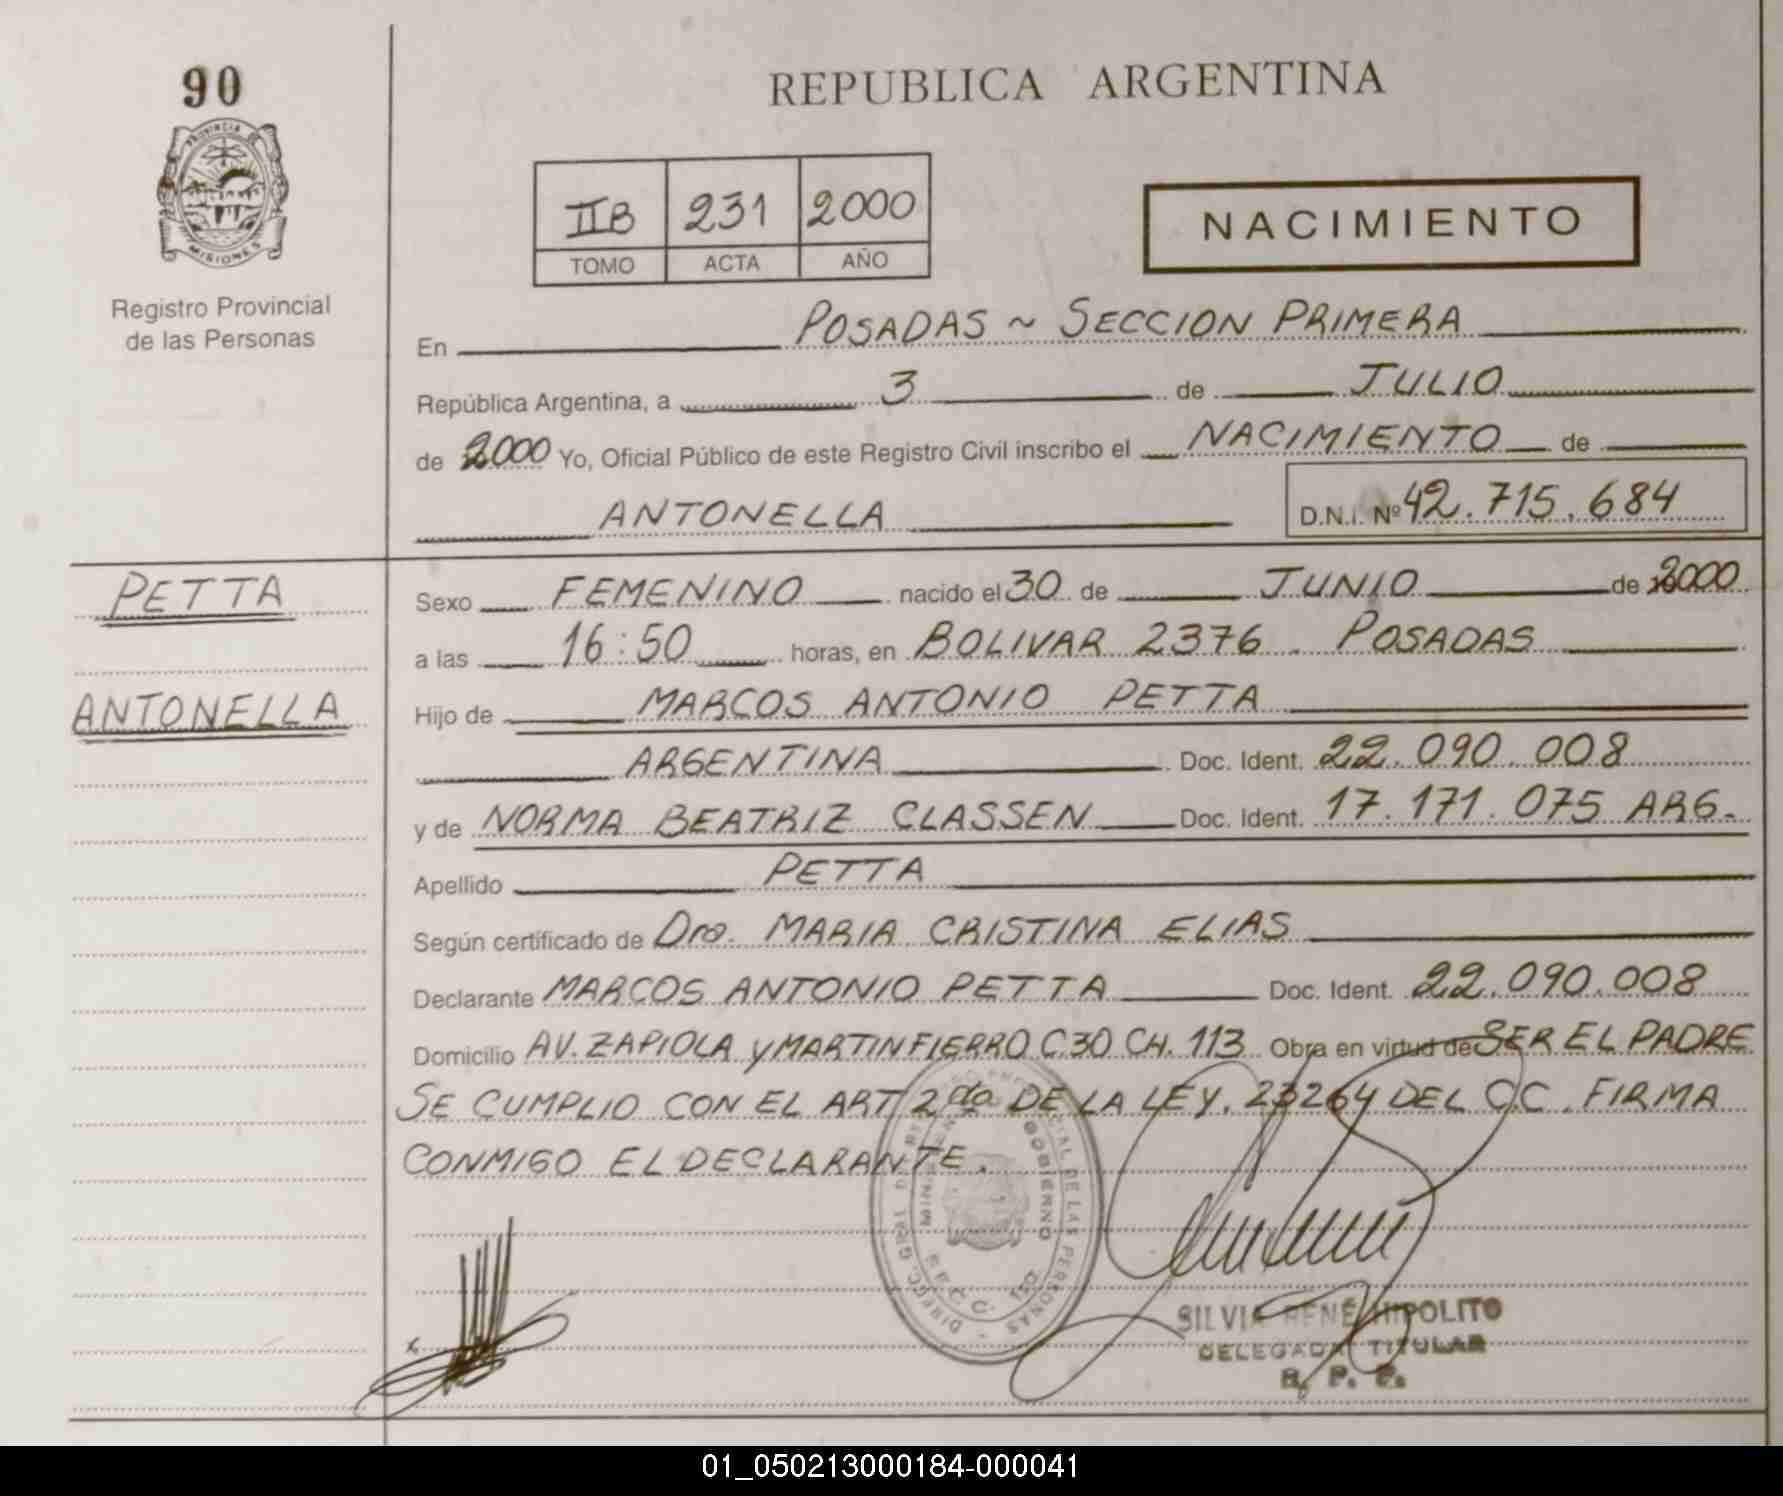 90
PROVINCIA DE
MISIONES
Registro Provincial
de las Personas
REPUBLICA ARGENTINA
IIB 231 2000
TOMO ACTA AÑO
NACIMIENTO
En POSADAS ~ SECCION PRIMERA
República Argentina, a 3 de JULIO
de 2000 Yo, Oficial Público de este Registro Civil inscribo el NACIMIENTO de
ANTONELLA D.N.I. Nº 42.715.684
PETTA
ANTONELLA
Sexo FEMENINO nacido el 30 de JUNIO de 2000
a las 16:50 horas, en BOLIVAR 2376. POSADAS
Hijo de MARCOS ANTONIO PETTA
ARGENTINA Doc. Ident. 22.090.008
y de NORMA BEATRIZ CLASSEN Doc. Ident. 17.171.075 ARG.
Apellido PETTA
Según certificado de Dra. MARIA CRISTINA ELIAS
Declarante MARCOS ANTONIO PETTA Doc. Ident. 22.090.008
Domicilio AV. ZAPIOLA y MARTIN FIERRO C.30 CH. 113 Obra en virtud de SER EL PADRE
SE CUMPLIO CON EL ART 2do DE LA LEY. 23264 DEL C.C. FIRMA
CONMIGO EL DECLARANTE.
SILVIA RENÉ HIPOLITO
DELEGADA TITULAR
R. P. P.
01_050213000184-000041